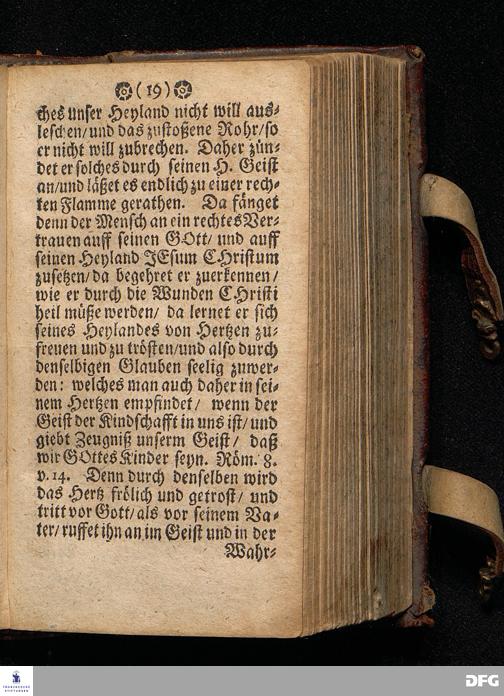 ❁(19)❁
ches unser Heyland nicht will aus-
leschen/und das zustoßene Rohr/so
er nicht will zubrechen. Daher zün-
det er solches durch seinen H. Geist
an/und läßet es endlich zu einer rech-
ten Flamme gerathen. Da fänget
denn der Mensch an ein rechtes Ver-
trauen auff seinen GOtt/ und auff
seinen Heyland JEsum CHristum
zusetzen/da begehret er zuerkennen/
wie er durch die Wunden CHristi
heil müße werden/ da lernet er sich
seines Heylandes von Hertzen zu-
freuen und zu trösten/und also durch
denselbigen Glauben seelig zuwer-
den: welches man auch daher in sei-
nem Hertzen empfindet/ wenn der
Geist der Kindschafft in uns ist/und
giebt Zeugniß unserm Geist/ daß
wir GOttes Kinder seyn. Röm. 8.
v. 14. Denn durch denselben wird
das Hertz frölich und getrost/ und
tritt vor Gott/als vor seinem Va-
ter/ruffet ihn an im Geist und in der
Wahr-
FRANCKESCHE
STIFTUNGEN
DFG